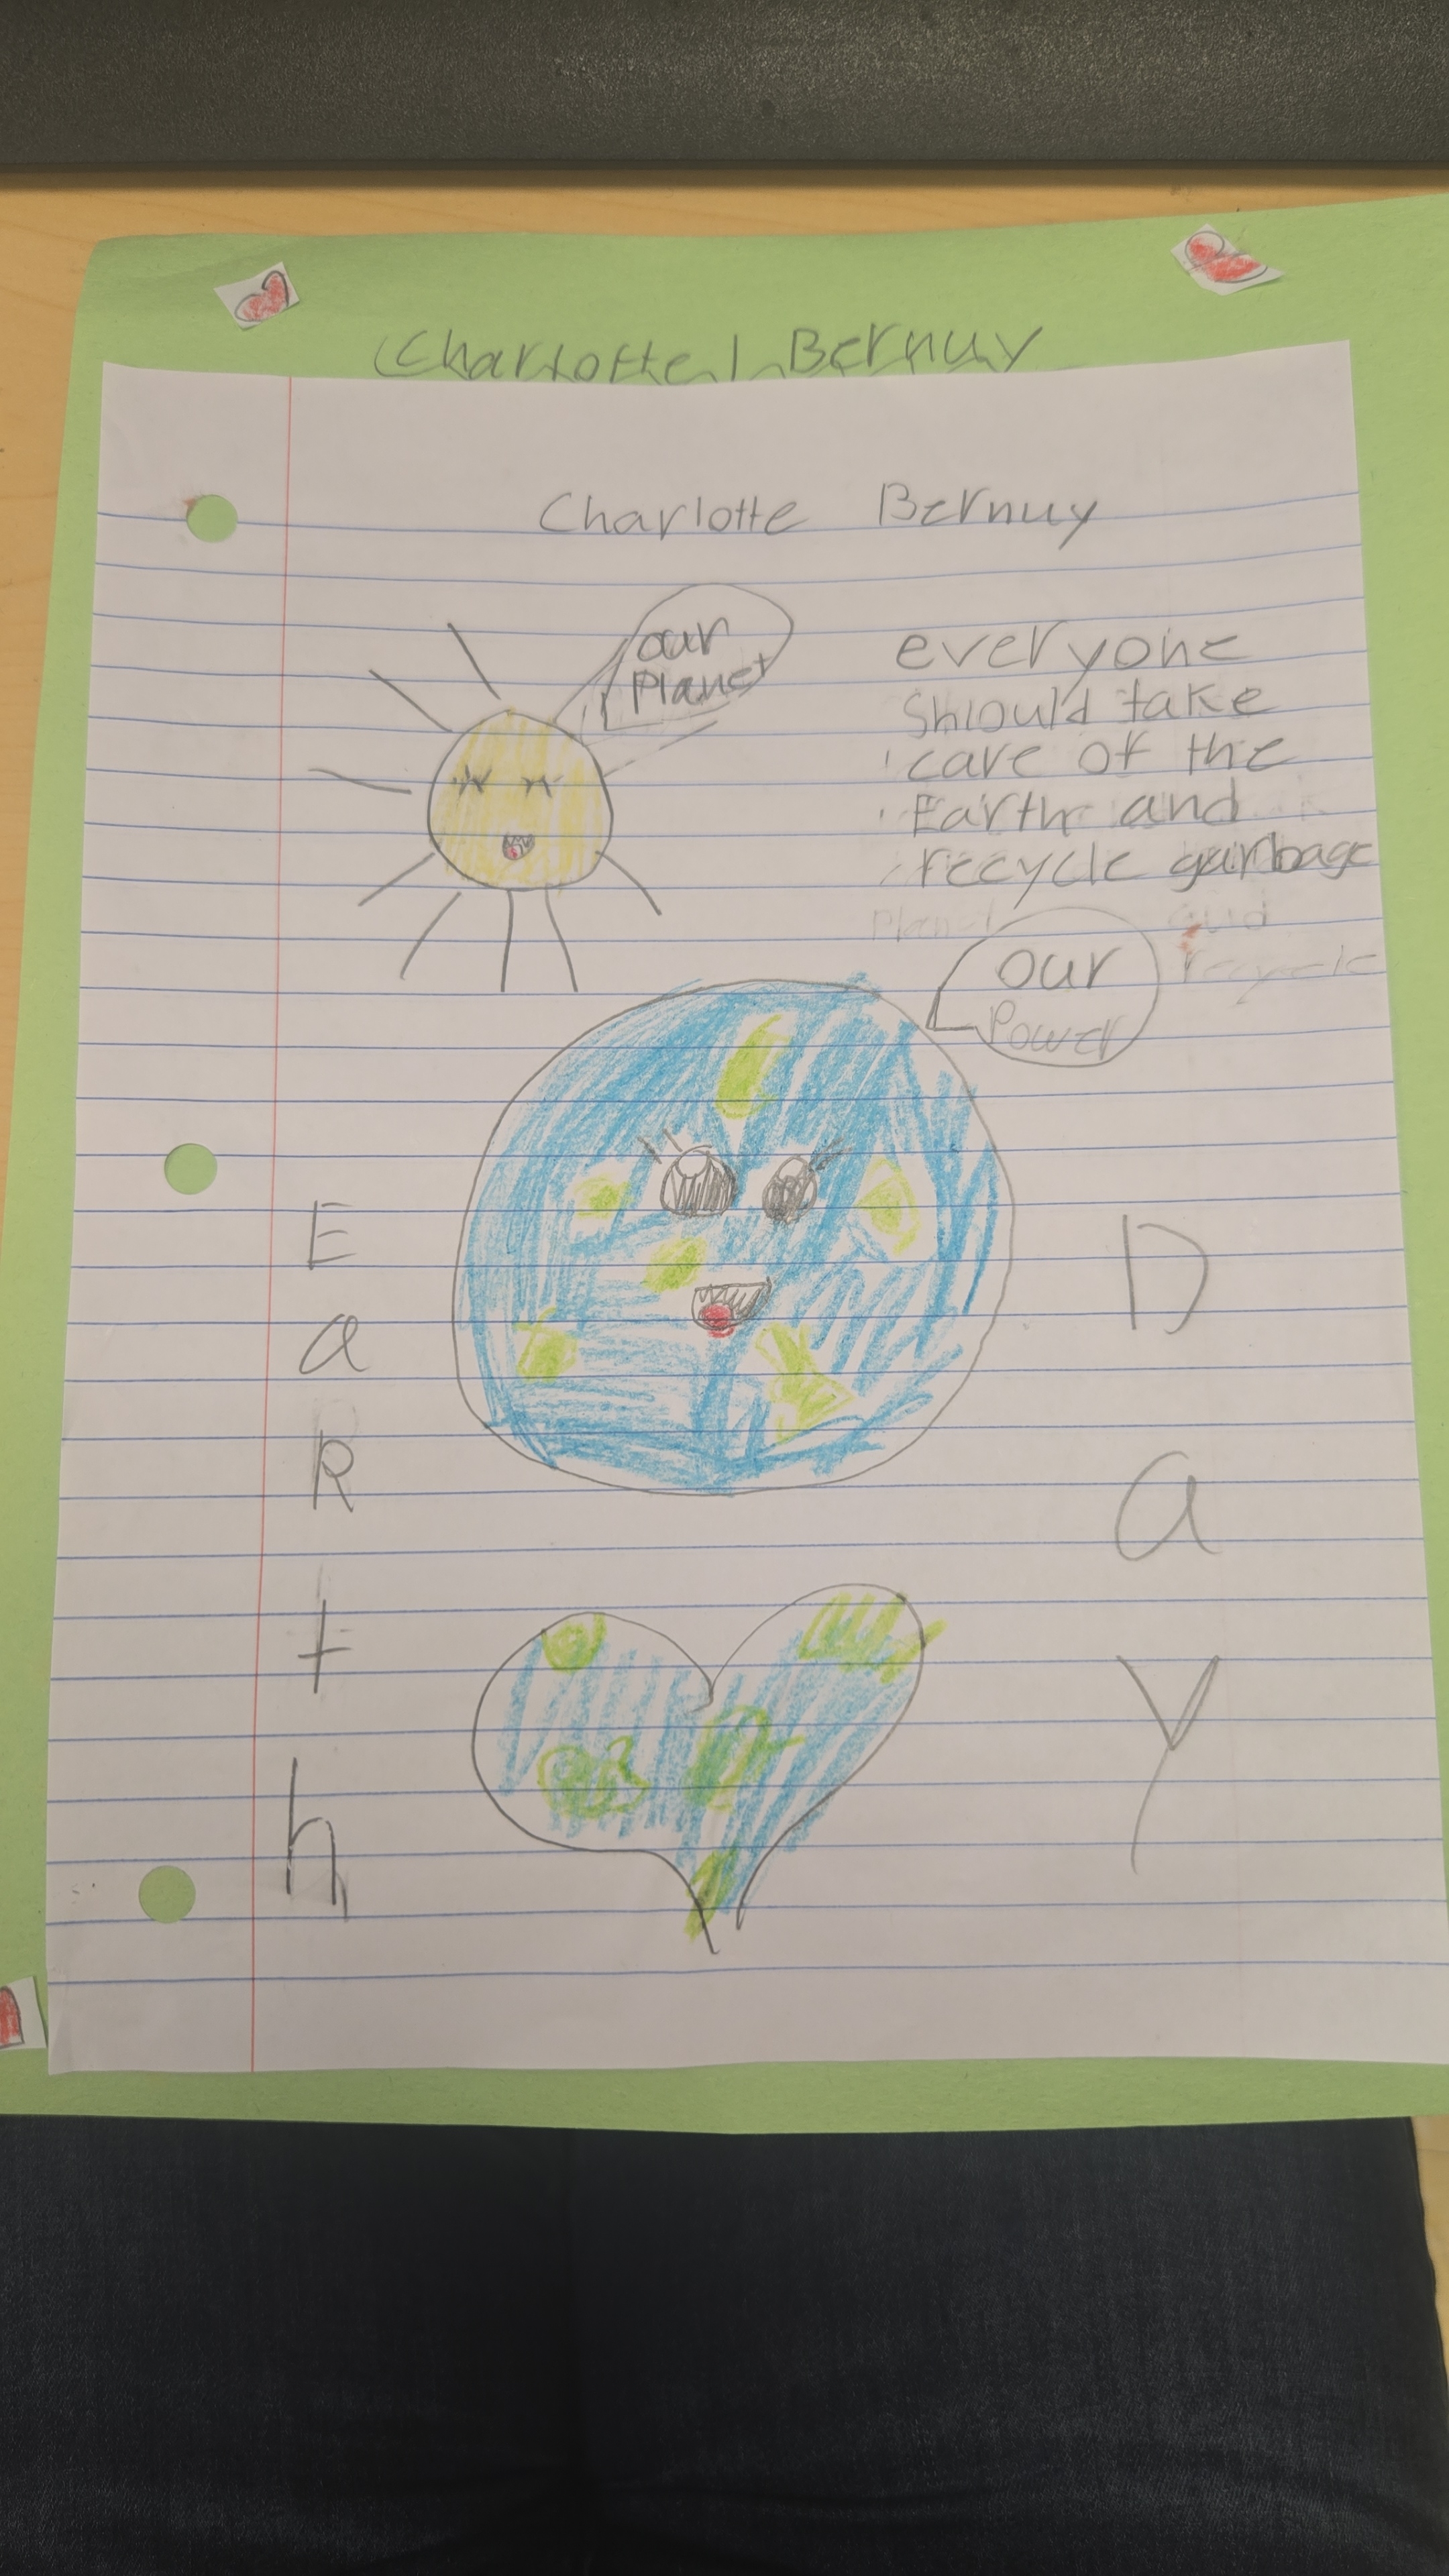 Charlotte Bernuy
Charlotte Bernuy
our
Planet
everyone
Should take
care of the
Earth and
recycle garbage
Planet and
recycle
our
Power
E
a
R
t
h
D
a
y